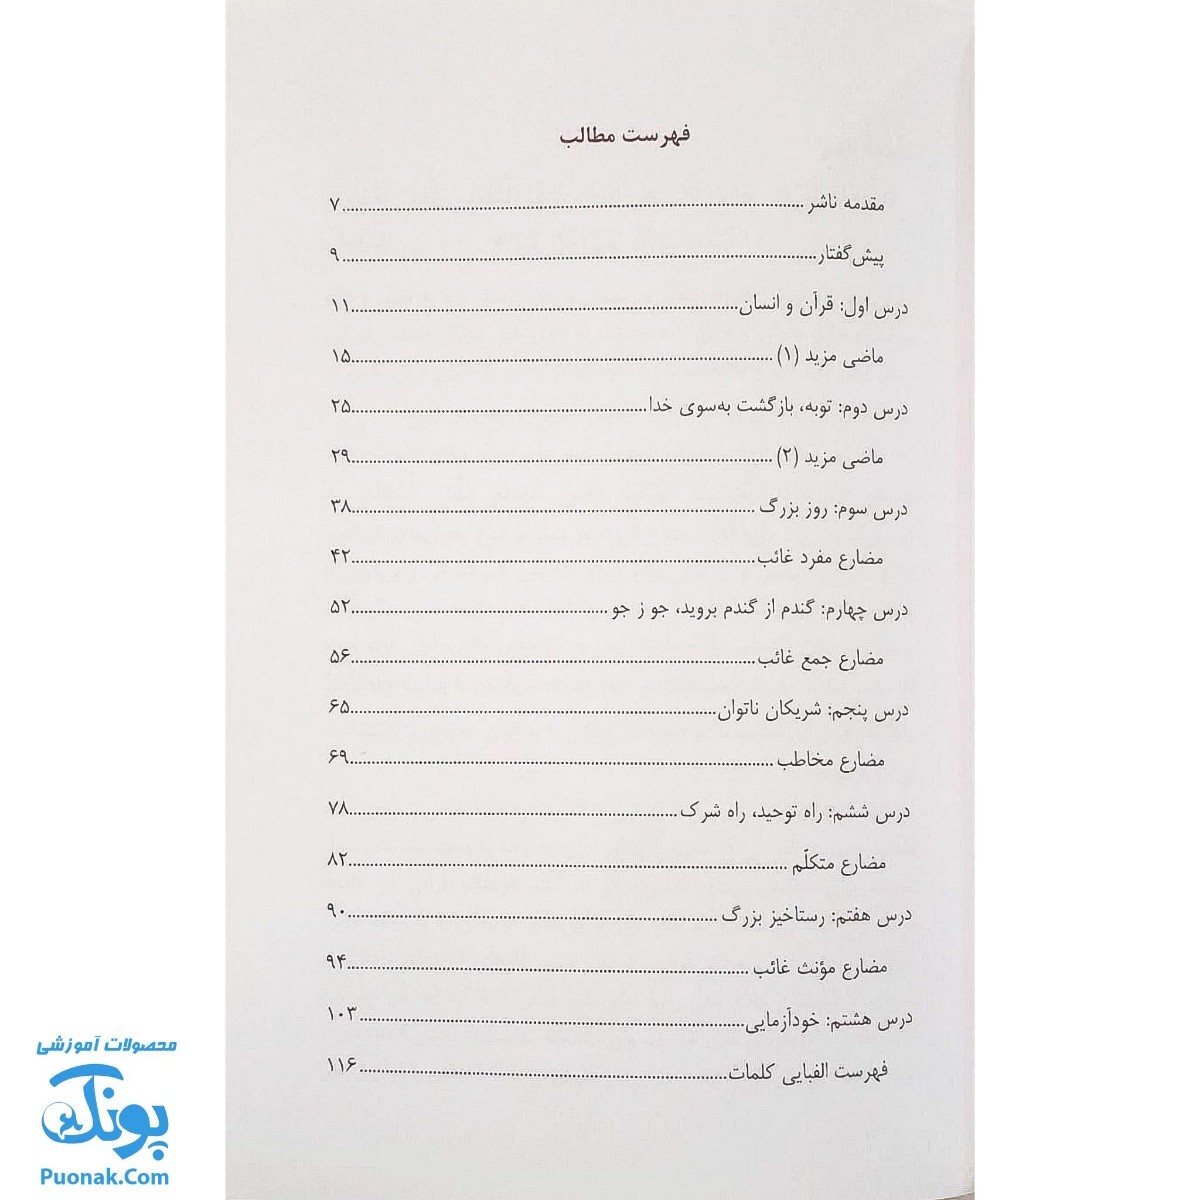 فهرست مطالب
مقدمه ناشر ........ ۷
پیش‌گفتار ........ ۹
درس اول: قرآن و انسان ........ ۱۱
ماضی مزید (۱) ........ ۱۵
درس دوم: توبه، بازگشت به‌سوی خدا ........ ۲۵
ماضی مزید (۲) ........ ۲۹
درس سوم: روز بزرگ ........ ۳۸
مضارع مفرد غائب ........ ۴۲
درس چهارم: گندم از گندم بروید، جو ز جو ........ ۵۲
مضارع جمع غائب ........ ۵۶
درس پنجم: شریکان ناتوان ........ ۶۵
مضارع مخاطب ........ ۶۹
درس ششم: راه توحید، راه شرک ........ ۷۸
مضارع متکلّم ........ ۸۲
درس هفتم: رستاخیز بزرگ ........ ۹۰
مضارع مؤنث غائب ........ ۹۴
درس هشتم: خودآزمایی ........ ۱۰۳
فهرست الفبایی کلمات ........ ۱۱۶
محصولات آموزشی
پونک
Puonak.Com